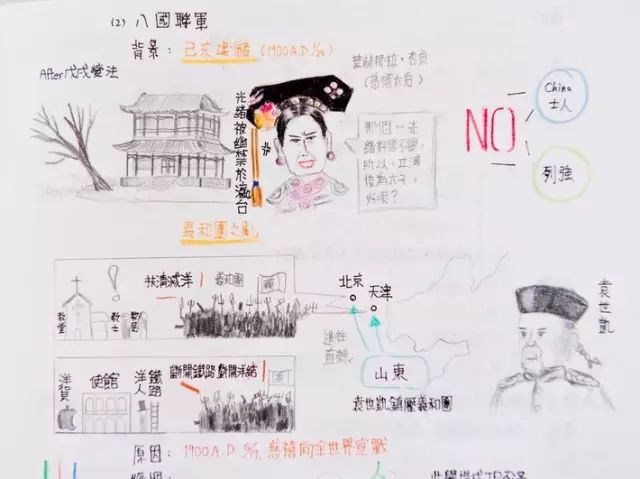 (2) 八國聯軍
背景：己亥建儲 (1900 A.D. 1/24)
After 戊戌變法
光緒被幽禁於瀛台
葉赫那拉·杏貞
(慈禧太后)
那個…光
緒好像不學,
所以,立溥
儁為太子,
好很?
NO
China
士人
列強
義和團之亂
教堂
教士
教民
!
扶清滅洋
義和團
北京
天津
逃往
直隸
山東
袁世凱鎮壓義和團
袁世凱
洋貨
使館
洋人
鐵路
斷開鐵路 斷開洋結
原因：1900 A.D. 6/21, 慈禧向全世界宣戰